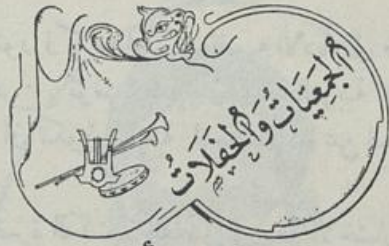 الجمعيَّات وَالحفَلَات